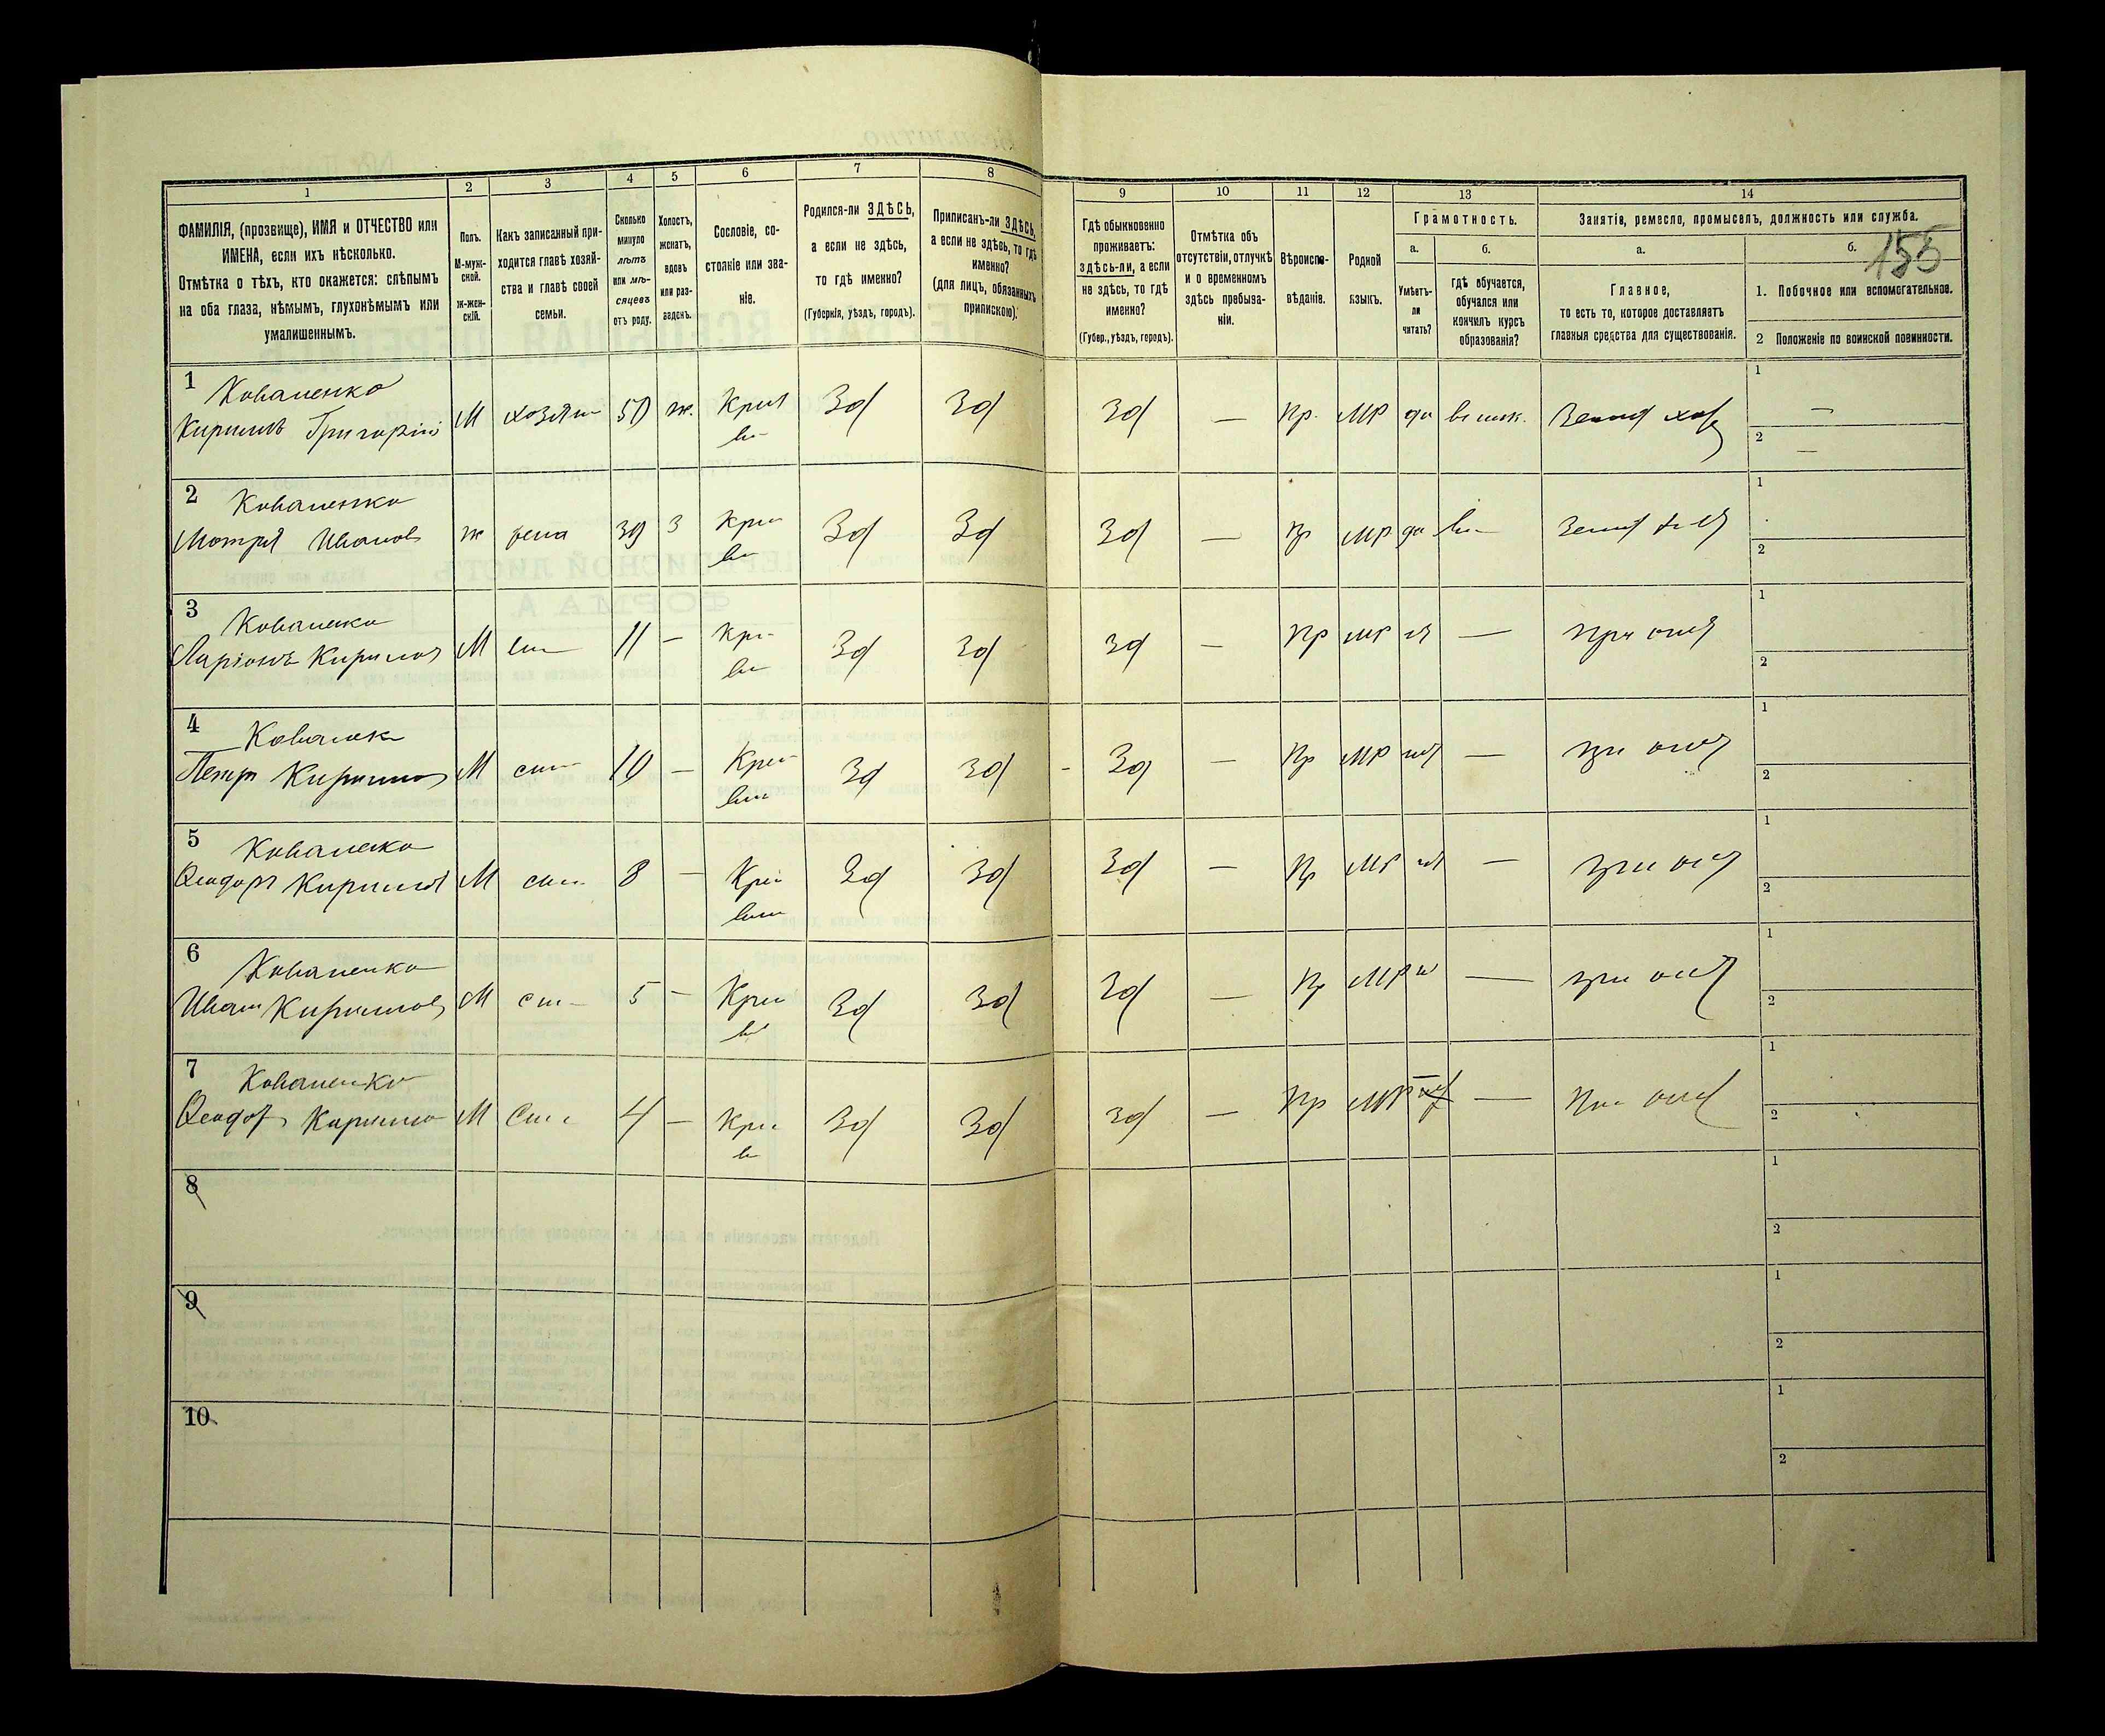 155
1 2 3 4 5 6 7 8 9 10 11 12 13 14
ФАМИЛІЯ, (прозвище), ИМЯ и ОТЧЕСТВО или
ИМЕНА, если ихъ нѣсколько.
Отмѣтка о тѣхъ, кто окажется: слѣпымъ
на оба глаза, нѣмымъ, глухонѣмымъ или
умалишеннымъ.
Полъ.
М-муж-
ской.
ж-жен-
скій.
Какъ записанный при-
ходится главѣ хозяй-
ства и главѣ своей
семьи.
Сколько
минуло
лѣтъ
или мѣ-
сяцевъ
отъ роду.
Холостъ,
женатъ,
вдовъ
или раз-
веденъ.
Сословіе, со-
стояніе или зва-
ніе.
Родился-ли ЗДѢСЬ,
а если не здѣсь,
то гдѣ именно?
(Губернія, уѣздъ, городъ).
Приписанъ-ли ЗДѢСЬ,
а если не здѣсь, то гдѣ
именно?
(для лицъ, обязанныхъ
припискою).
Гдѣ обыкновенно
проживаетъ:
здѣсь-ли, а если
не здѣсь, то гдѣ
именно?
(Губер., уѣздъ, городъ).
Отмѣтка объ
отсутствіи, отлучкѣ
и о временномъ
здѣсь пребыва-
ніи.
Вѣроиспо-
вѣданіе.
Родной
языкъ.
Грамотность.
а.
Умѣетъ-
ли
читать?
б.
гдѣ обучается,
обучался или
кончилъ курсъ
образованія?
Занятіе, ремесло, промыселъ, должность или служба.
а.
Главное,
то есть то, которое доставляетъ
главныя средства для существованія.
б.
1. Побочное или вспомогательное.
2 Положеніе по воинской повинности.
1 Коваленко
Кирилъ Григорій М хозяин 50 ж. Зд Зд Зд — Пр. МР да Землед 1 —
2 —
2 Коваленко
Мотря Иванов ж жена 39 З Зд Зд Зд — Пр МР да 1
2
3 Коваленко
Ларіонъ Кирилов М 11 — Зд Зд Зд — Пр МР — при отц 1
2
4 Коваленк
Петр Кирилов М сын 10 — Зд Зд Зд — Пр МР — при отц 1
2
5 Коваленко
Ѳеодоръ Кирилов М сын 8 — Зд Зд Зд — Пр МР — при отц 1
2
6 Коваленко
Иван Кирилов М сын 5 — Зд Зд Зд — Пр МР — при отц 1
2
7 Коваленко
Ѳеодор Кирило М Сын 4 — Зд Зд Зд — Пр МР — При отц 1
2
8 1
2
9 1
2
10 1
2